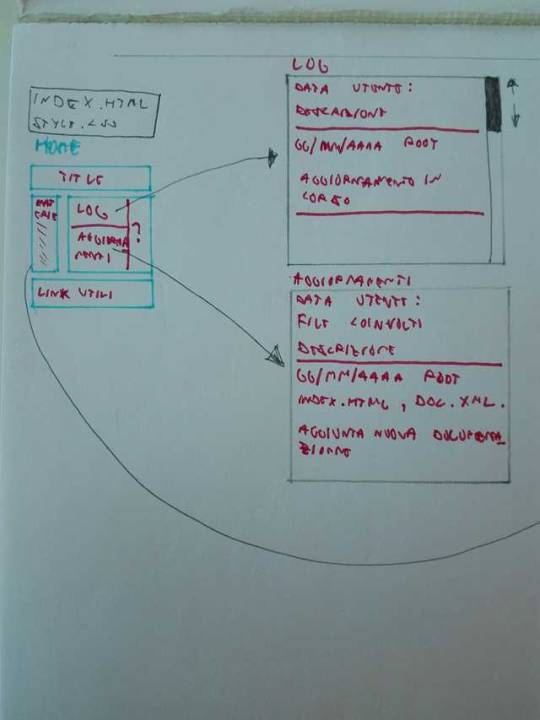 INDEX.HTML
STYLE.CSS
HOME
TITLE
LOG
?
AGGIORNA
MENTI
LINK UTILI
LOG
DATA UTENTE:
DESCRIZIONE
GG/MM/AAAA ROOT
AGGIORNAMENTO IN
CORSO
AGGIORNAMENTI
DATA UTENTE:
FILE COINVOLTI
DESCRIZIONE
GG/MM/AAAA ROOT
INDEX.HTML, DOC.XML.
AGGIUNTA NUOVA DOCUMENTA
ZIONE